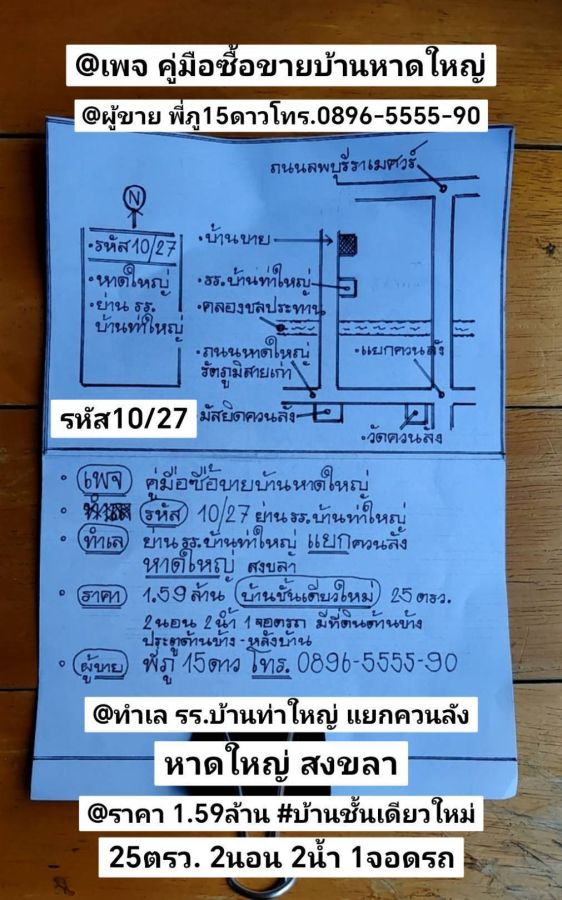 @เพจ คู่มือซื้อขายบ้านหาดใหญ่
@ผู้ขาย พี่ภู15ดาวโทร.0896-5555-90
ถนนลพบุรีราเมศวร์
N
รหัส10/27
หาดใหญ่
ย่าน รร.
บ้านท่าใหญ่
บ้านขาย
รร.บ้านท่าใหญ่
คลองชลประทาน
ถนนหาดใหญ่
รัตภูมิสายเก่า
แยกควนลัง
มัสยิดควนลัง
วัดควนลัง
รหัส10/27
เพจ คู่มือซื้อขายบ้านหาดใหญ่
รหัส 10/27 ย่านรร.บ้านท่าใหญ่
ทำเล ย่านรร.บ้านท่าใหญ่ แยกควนลัง
หาดใหญ่ สงขลา
ราคา 1.59 ล้าน บ้านชั้นเดียวใหม่ 25 ตรว.
2นอน 2น้ำ 1จอดรถ มีที่ดินด้านข้าง
ประตูด้านข้าง-หลังบ้าน
ผู้ขาย พี่ภู 15ดาว โทร. 0896-5555-90
@ทำเล รร.บ้านท่าใหญ่ แยกควนลัง
หาดใหญ่ สงขลา
@ราคา 1.59ล้าน #บ้านชั้นเดียวใหม่
25ตรว. 2นอน 2น้ำ 1จอดรถ